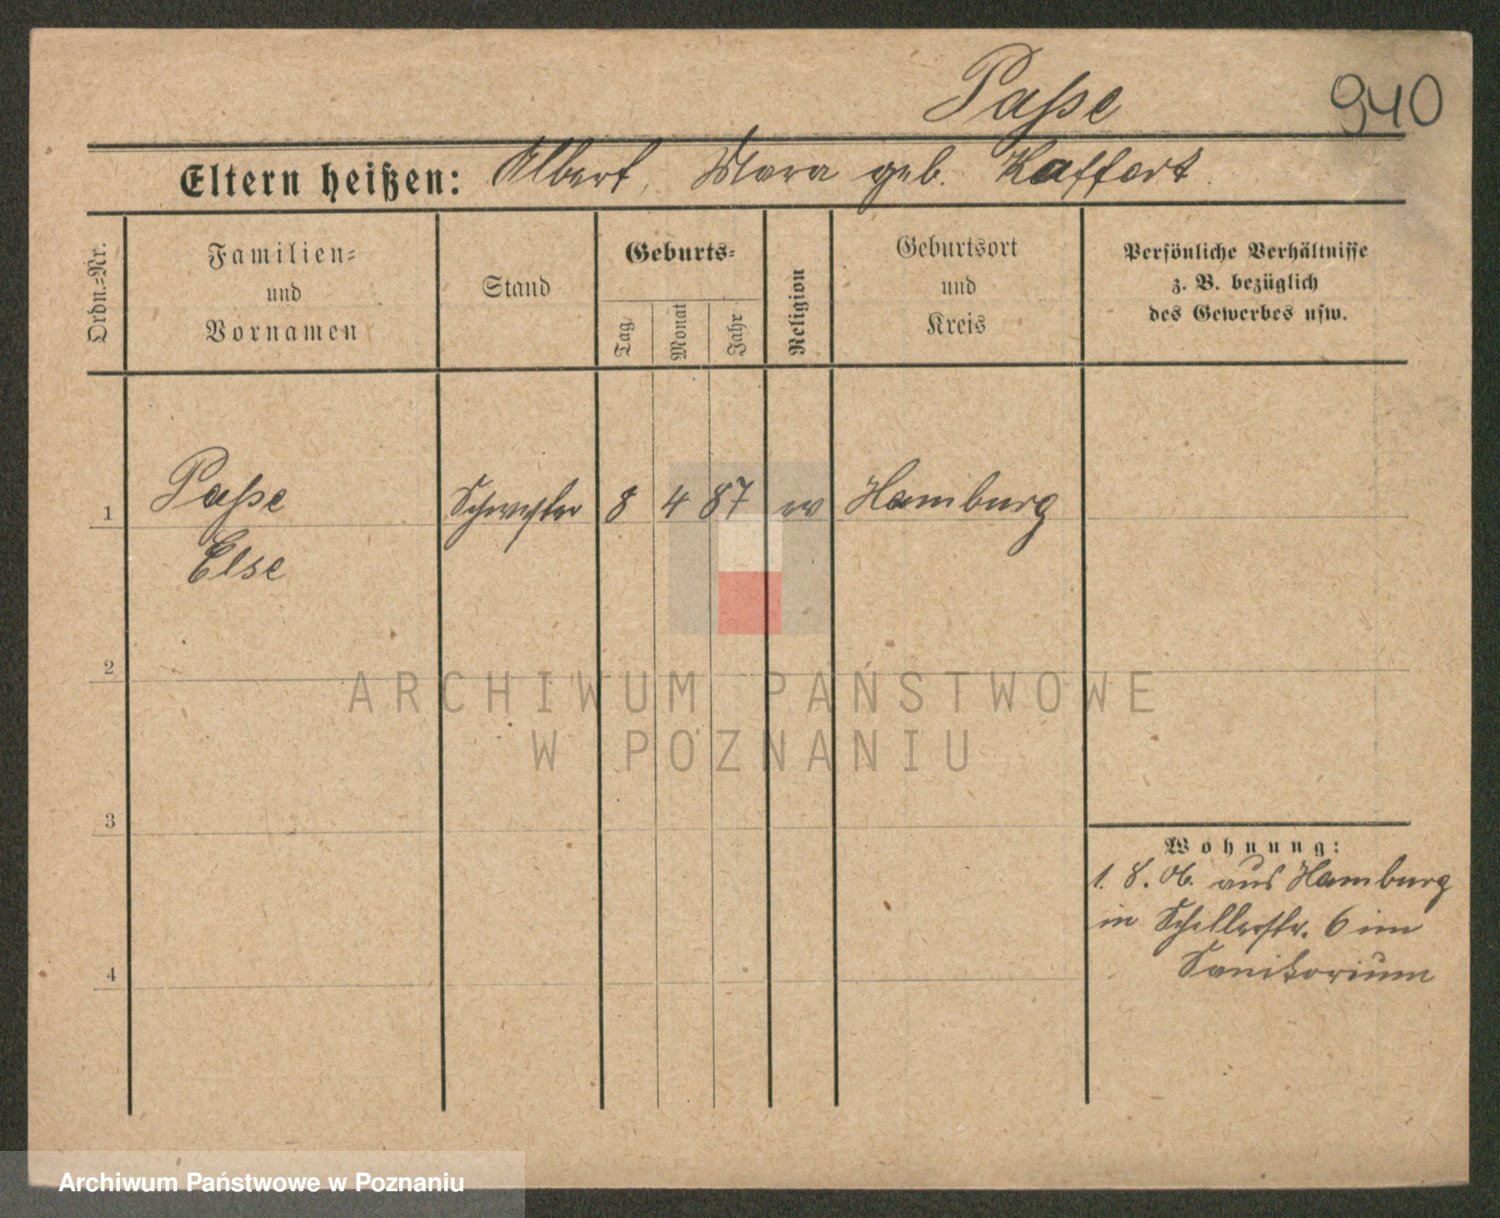 Paße
940
Eltern heißen: Albert, Mara geb. Kaffert.
Ordn.-Nr.
Familien-
und
Vornamen
Stand
Geburts-
Tag
Monat
Jahr
Religion
Geburtsort
und
Kreis
Persönliche Verhältnisse
z. B. bezüglich
des Gewerbes usw.
1
Paße
Else
Schwester
8
4
87
ev
Hamburg
2
3
4
Wohnung:
1. 8. 06. aus Hamburg
in Schillerstr. 6 im
Sanitorium
ARCHIWUM PAŃSTWOWE
W POZNANIU
Archiwum Państwowe w Poznaniu